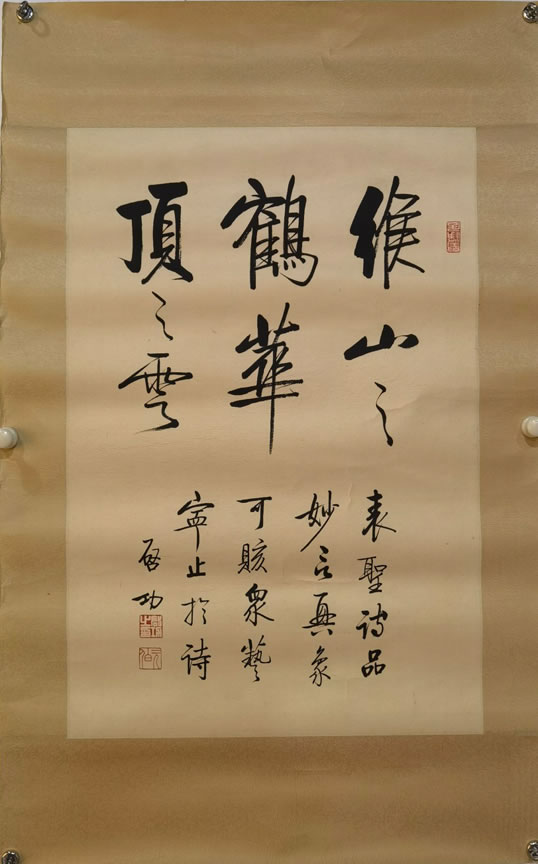 緱山之
鶴華
頂之雲
表聖詩品
妙言興象
可賅衆藝
寧止於詩
启功